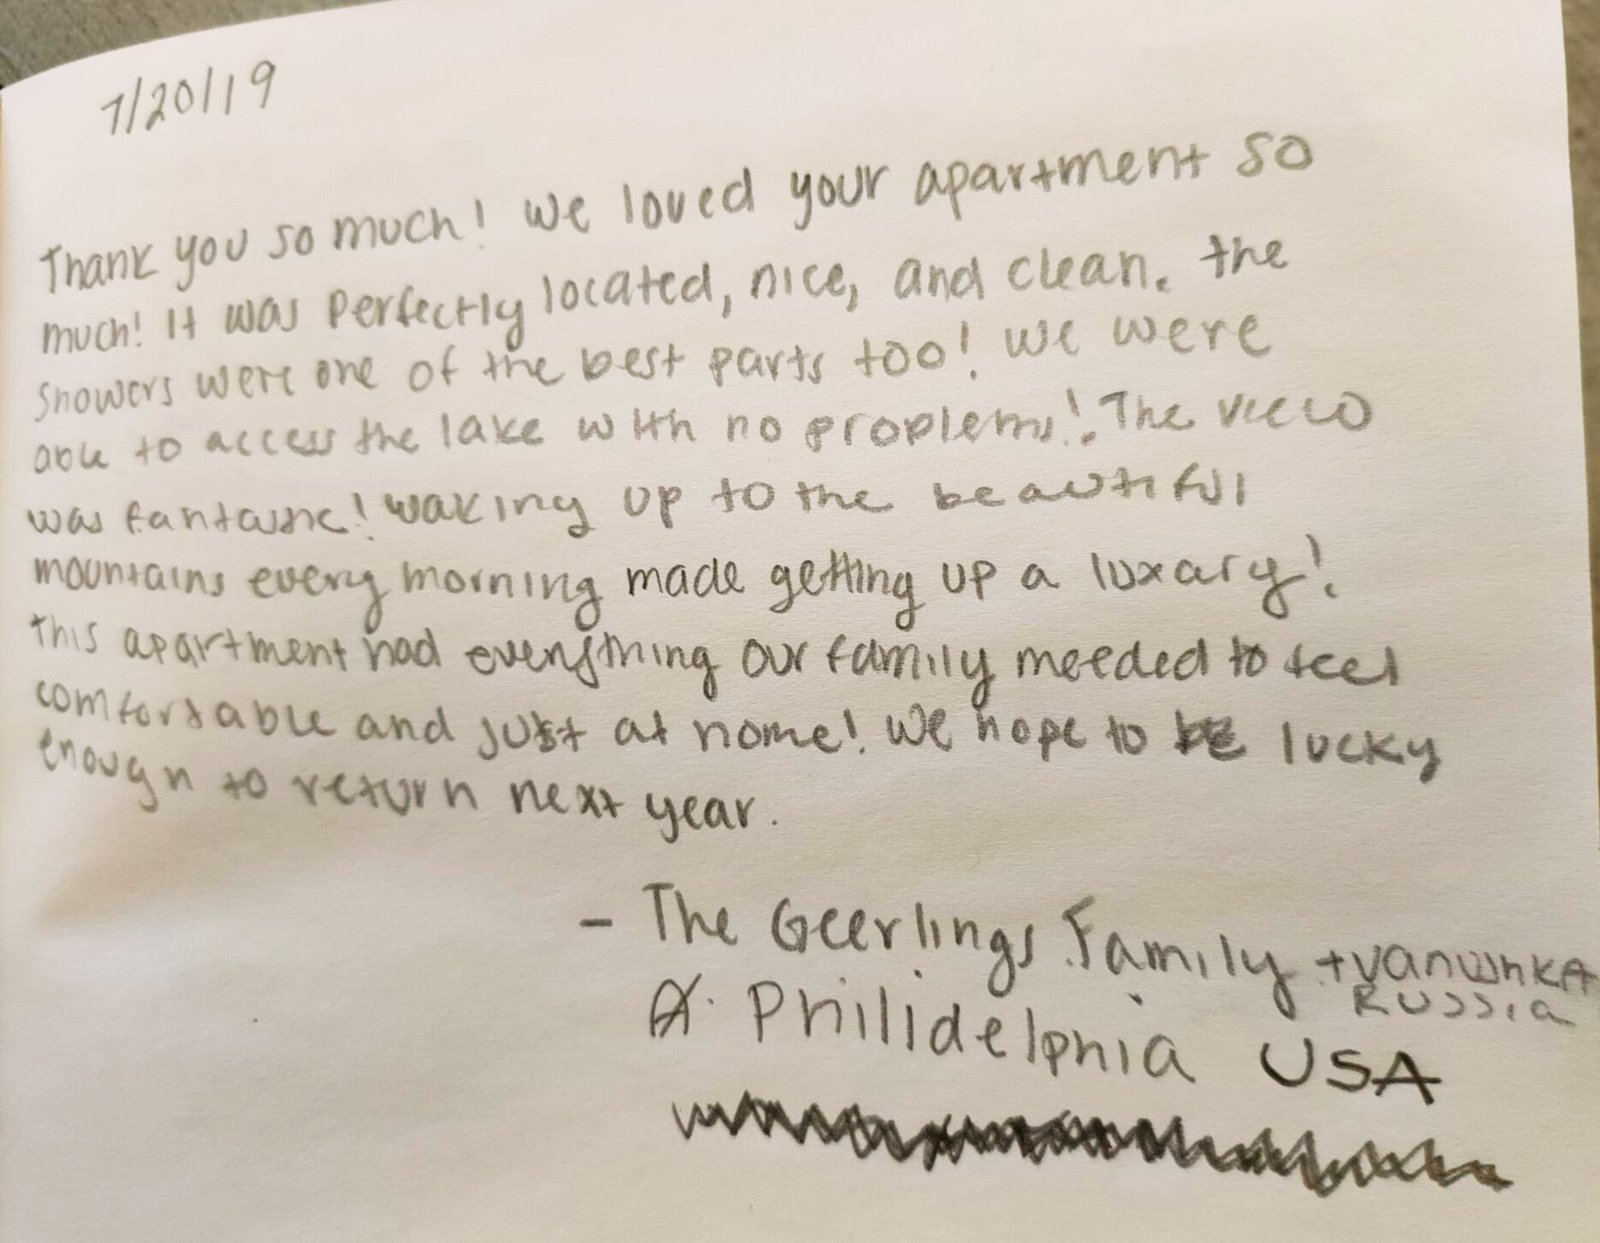 7/20/19
Thank you so much! We loved your apartment so
much! It was perfectly located, nice, and clean. The
showers were one of the best parts too! We were
able to access the lake with no proplems! The view
was fantastic! waking up to the beautiful
mountains every morning made getting up a luxary!
This apartment had everything our family needed to feel
comfortable and just at home! We hope to be lucky
enough to return next year.
- The Geerlings Family + Vanwinka
Russia
Philidelphia USA